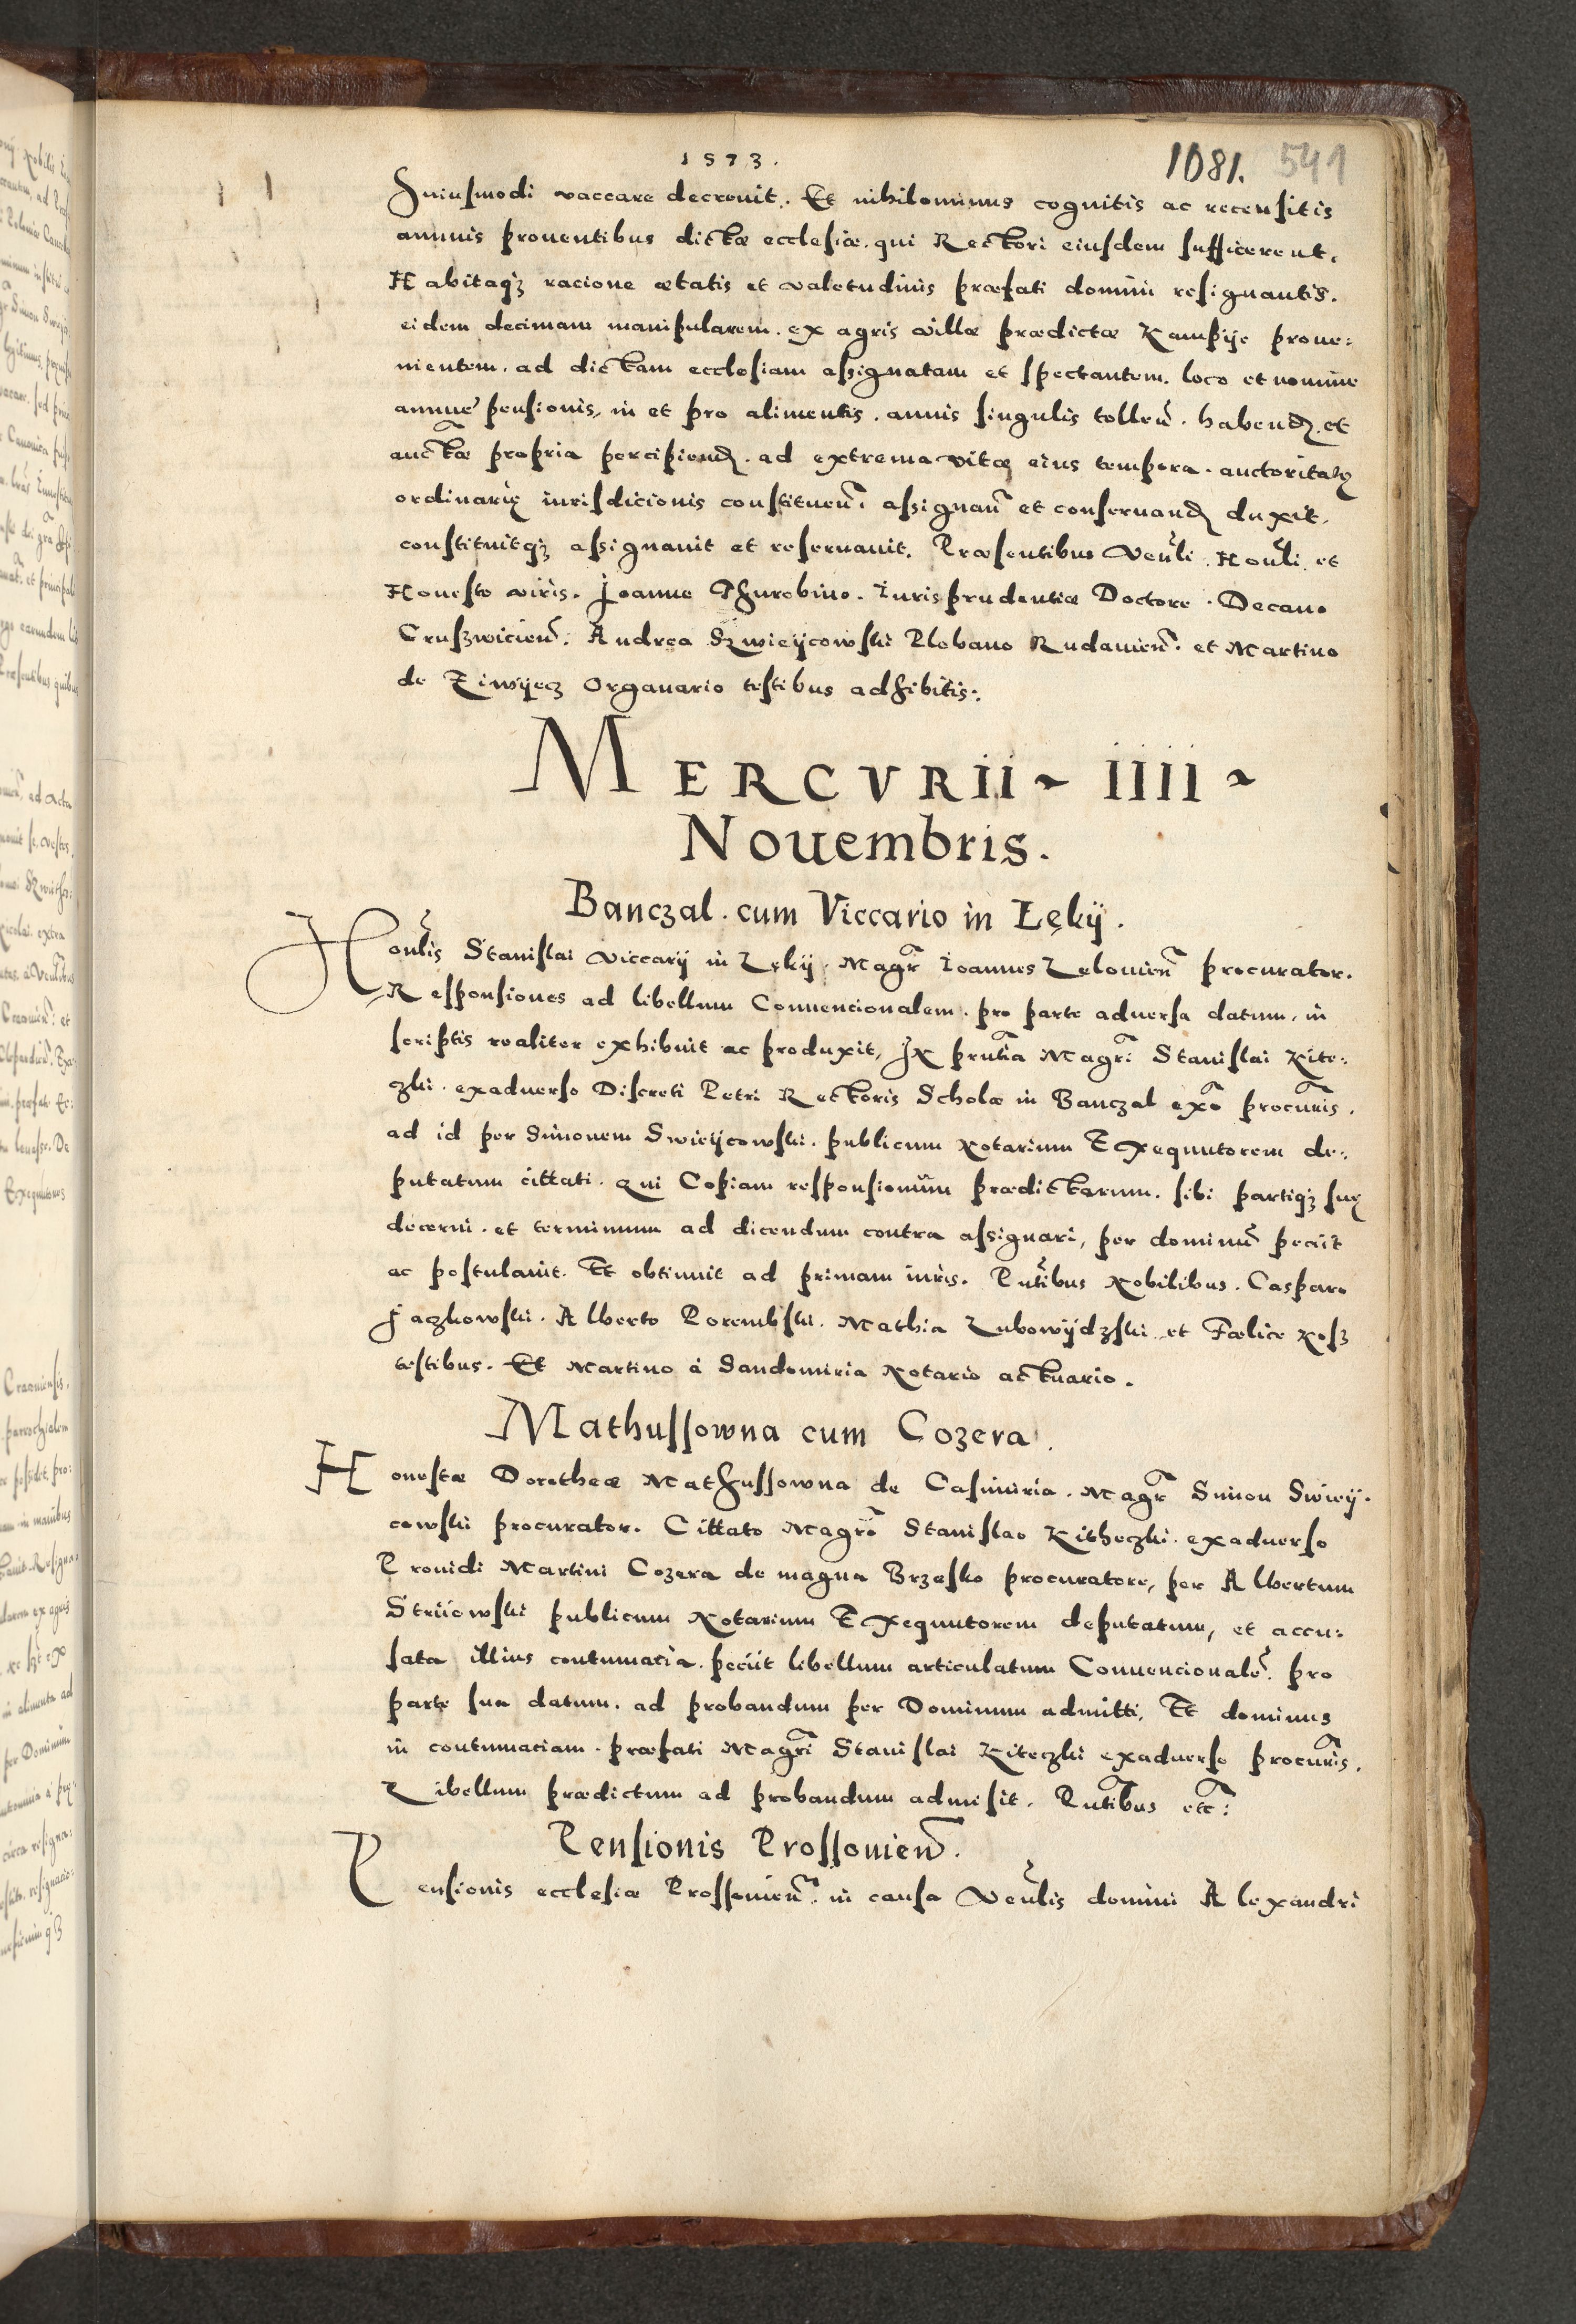 1573.
1081. 541
Huiusmodi vaccare decrevit. Et nihilominus cognitis ac recensitis
annuis proventibus dictæ ecclesiæ. qui Rectori eiusdem sufficerent.
Habitaqz racione ætatis et valetudinis præfati domini resignantis.
eidem decimam manipularem. ex agris villæ prædictæ Kampije prove:
nientem. ad dictam ecclesiam assignatam et spectantem. loco et nomine
annuę pensionis, in et pro alimentis. annis singulis tolleñ. habend. et
auctæ propria percipiend. ad extrema vitæ eius tempora. auctoritatę
ordinarię iurisdicionis constitueñ. assignañ et conservand duxit.
constituitqz assignavit et reservavit. Præsentibus Venli. Honli. et
Honesto viris. Joanne Thurobino. Iurisprudentiæ Doctore. Decano
Cruszwicień. Andrea Szwieijcowski Plebano Rudanień. et Martino
de Ziwijecz Organario testibus adhibitis:.
MERCVRII ~ IIII ~
Nouembris.
Banczal. cum Viccario in Lękij.
Honlis Stanislai viccarij in Lękij. Magr Ioannes Lelovień procurator.
Responsiones ad libellum Convencionalem. pro parte adversa datum. in
scriptis realiter exhibuit ac produxit, In pruntia Magri Stanislai Kite:
czki. exadverso Discreti Petri Rectoris Scholæ in Banczal exo procuris.
ad id per Simonem Swieijcowski. publicum Notarium Exequutorem de:
putatum cittati. qui Copiam responsionum prædictarum. sibi partiqz suę
decerni. et terminum ad dicendum contra assignari, per dominu peciit
ac postulavit. Et obtinuit ad primam iuris. Pntibus Nobilibus. Casparo
Jaczkowski. Alberto Porembski. Mathia Lubowijdzski. et Fœlice Kosz
testibus. Et Martino à Sandomiria Notario actuario.
Mathussowna cum Cozera.
Honestæ Dorotheæ Mathussowna de Casimiria. Magr Simon Swiey.
cowski procurator. Cittato Magro Stanislao Kitheczki. exadverso
Providi Martini Cozera de magna Brzesko procuratore, per Albertum
Striiowski publicum Notarium Exequutorem deputatum, et accu:
sata illius contumatia. peciit libellum articulatum Convencionale. pro
parte sua datum. ad probandum per Dominum admitti. Et dominus
in contumatiam. præfati Magri Stanislai Kiteczki exadverso procuris.
Libellum prædictum ad probandum admisit. Pntibus etc:
Pensionis Prossovień.
Pensionis ecclesiæ Prossovień. in causa Venlis domini Alexandri